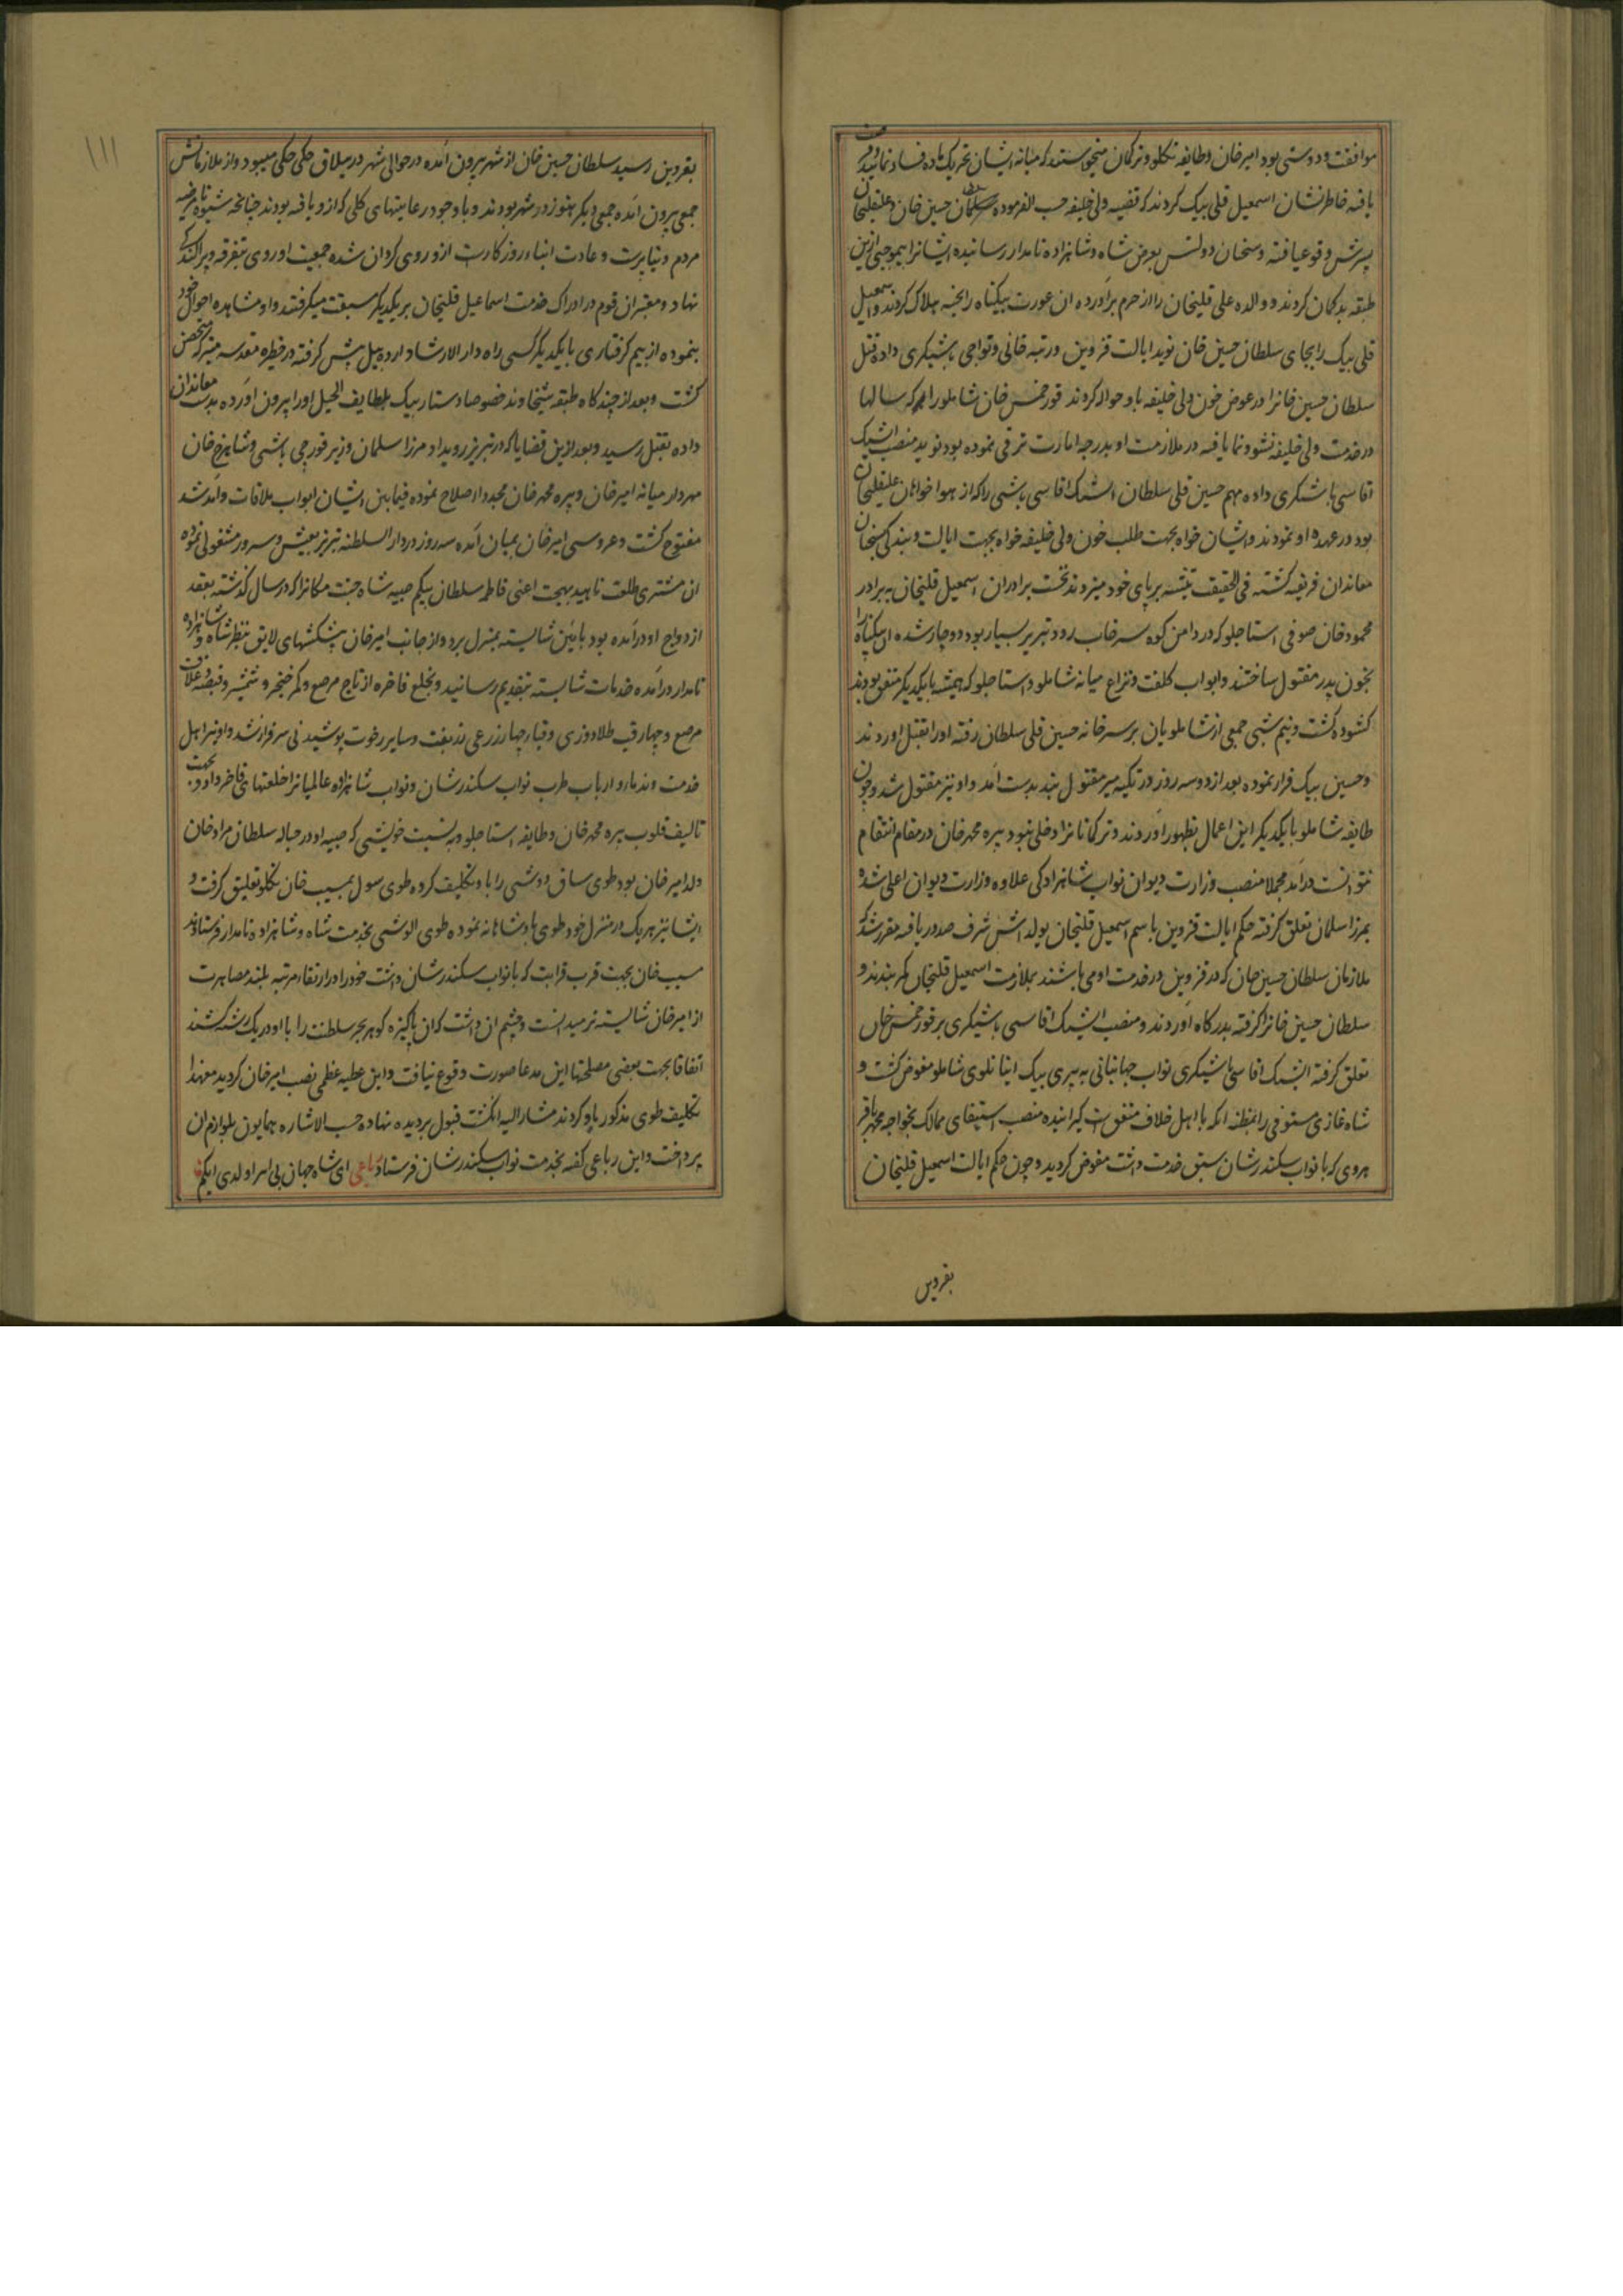 موافقت و دوستی بود امیر خان و طایفه تکلو و ترکمان میخواستند که میانه ایشان تحریک ماده فساد نمایند
یافته خاطرنشان اسمعیل قلی بیک کردند که قضیه ولی خلیفه حسب الفرموده سلطان حسین خان و علیقلیخان
پسرش وقوع یافته و سخنان دولتس بعرض شاه و شاهزاده نامدار رسانیده ایشانرا بموجبی ازین
طبقه بدکمان کردند و والده علی قلیخان را از حرم برآورده ان عورت بیکناه را بخبه هلاک کردند و اسمعیل
قلی بیک را بجای سلطان حسین خان نوید ایالت قزوین و رتبه خانی و تواجی باشیکری داده قتل
سلطان حسین خانرا در عوض خون ولی خلیفه باو حواله کردند قورخمس خان شاملو را هم که سالها
در خدمت ولی خلیفه نشو و نما یافته در ملازمت او بدرجه امارت ترقی نموده بود نوید منصب ایشیک
اقاسی باشیکری داده مهم حسین قلی سلطان ایشیک اقاسی باشی را که از هوا خواهان علیقلیخان
بود در عهده او نمودند و ایشان خواه بجهت طلب خون ولی خلیفه خواه بجهت ایالت و بندکی سخنان
معاندان فریفته کشته فی الحقیقت تیشه بر پای خود میزدند نخست برادران اسمعیل قلیخان به برادر
محمود خان صوفی استاجلو که در دامن کوه سرخاب رود تبریز بسیار بود دوچار شده ان بیکناه را
بخون پدر مقتول ساختند و ابواب کلفت و نزاع میانه شاملو و استاجلو که همیشه با یکدیکر متفق بودند
کشوده کشت و نیم شبی جمعی از شاملویان بر سر خانه حسین قلی سلطان رفته او را بقتل اوردند
و حسین بیک فرار نموده بعد از دو سه روز در تکیه میر مقتول بند بدست آمد و او نیز مقتول شد و چون
طایفه شاملو با یکدیکر این اعمال بظهور آوردند و ترکمانانرا دخلی نبود پیره محمد خان در مقام انتقام
نتوانست درآمد مجملا منصب وزارت دیوان نواب شاهزادکی علاوه وزارت دیوان اعلی شده
بمرزا سلمان تعلق کرفته حکم ایالت قزوین باسم اسمعیل قلیخان یولداش شرف صدور یافته مقرر شد که
ملازمان سلطان حسین خان که در قزوین در خدمت او می باشند بملازمت اسمعیل قلیخان کمر بندند و
سلطان حسین خانرا کرفته بدرکاه آوردند و منصب ایشیک اقاسی باشیکری بر قورخمس خان
تعلق کرفته ایشیک اقاسی باشیکری نواب جهانبانی به پیری بیک اینانلوی شاملو مفوض کشت و
شاه غازی مستوفی را بمظنه انکه با اهل خلاف متفق است کیرانیده منصب استیفای ممالک بخواجه محمد باقر
هروی که با نواب سکندرشان سبق خدمت داشت مفوض کردید و چون حکم ایالت اسمعیل قلیخان
بقزوین
۱۱۱
بقزوین رسید سلطان حسین خان از شهر بیرون آمده در حوالی شهر در ییلاق چکی چکی میبود و از ملازمانش
جمعی بیرون آمده جمعی دیکر هنوز در شهر بودند و با وجود رعایتهای کلی که ازو یافته بودند چنانچه شیوه نامرضیه
مردم دنیا پرست و عادت ابناء روزکارست ازو روی کردان شده جمعیت او روی بتفرقه و پراکندکی
نهاد و معتبران قوم در ادراک خدمت اسماعیل قلیخان بر یکدیکر سبقت میکرفتند و او مشاهده احوال خود
نموده از بیم کرفتاری با یکدیکر کسی راه دار الارشاد اردبیل پیش کرفته در حظیره مقدسه متبرکه متحصن
کشت و بعد از چند کاه طبقه شیخاوند خصوصا دستار بیک بلطایف الحیل او را بیرون آورده بدست معاندان
داده بقتل رسید و بعد ازین قضایا که در تبریز رویداد مرزا سلمان وزیر قورچی باشی و شاهرخ خان
مهردار میانه امیر خان و پیره محمد خان مجددا اصلاح نموده فیمابین ایشان ابواب ملاقات و آمد شد
مفتوح کشت و عروسی امیر خان بمیان آمده سه روز در دار السلطنه تبریز بعیش و سرور مشغولی نموده
ان مشتری طلعت ناهید بهجت اعنی فاطمه سلطان بیکم صبیه شاه جنت مکانرا که در سال کذشته بعقد
ازدواج او درآمده بود بآئین شایسته بمنزل برد و از جانب امیر خان پیشکشهای لایق بنظر شاه و شاهزاده
نامدار درآمده خدمات شایسته بتقدیم رسانید و بخلع فاخره از تاج مرصع و کمر خنجر و شمشیر و قبضه و غلاف
مرصع و چهارقب طلادوزی و قبا و چهار ذرعی زربفت و سایر رخوت پوشیدنی سرفراز شد و او نیز اهل
خدمت و ندما و ارباب طرب نواب سکندرشان و نواب شاهزاده عالمیانرا خلعتهای فاخر داد و بجهت
تالیف قلوب پیره محمد خان و طایفه استاجلو و نسبت خویشی که صبیه او در حباله سلطان مراد خان
ولد امیر خان بود طوی ساق دوشی را باو تکلیف کرده طوی سول بمسیب خان تکلو تعلیق کرفت و
ایشان نیز هر یک در منزل خود طوی پادشاهانه نموده طوی الوشی بخدمت شاه و شاهزاده نامدار فرستادند
مسیب خان بجهت قرب قرابت که با نواب سکندرشان داشت خود را در ارتقاء مرتبه بلند مصاهرت
از امیر خان شایسته تر میدانست و چشم ان داشت که ان پاکیزه کوهر بحر سلطنت را با او در یک رشته کشند
اتفاقا بجهت بعضی مصلحتها این مدعا صورت وقوع نیافت و این عطیه عظمی نصیب امیر خان کردید معهذا
تکلیف طوی مذکور باو کردند مشار الیه انکشت قبول بر دیده نهاده حسب الاشاره همایون بلوازم ان
پرداخت و این رباعی کفته بخدمت نواب سکندرشان فرستاد رباعی ای شاه جهان